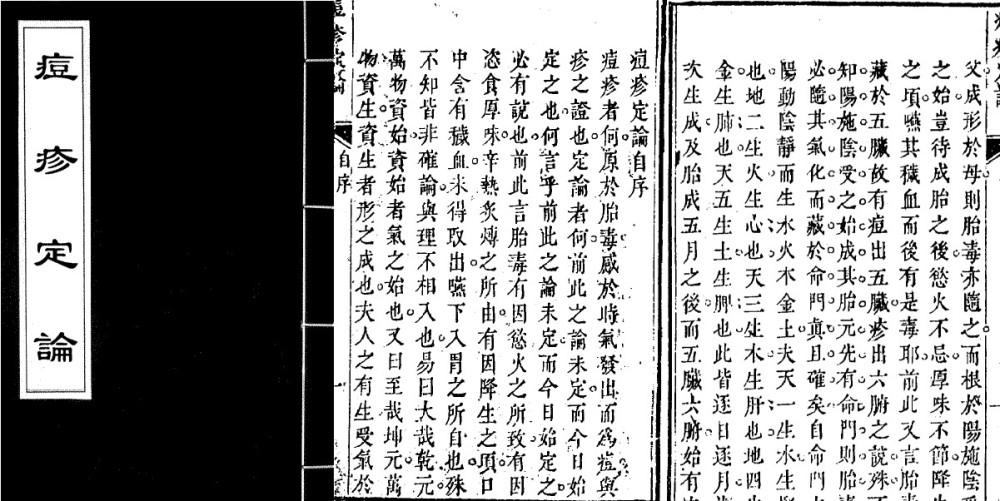 痘疹定論
痘疹定論自序
痘疹者何原於胎毒感於時氣發出而為痘與
疹之證也定論者何前此之論未定而今日始
定之也何言乎前此之論未定而今日始定之
必有說也前此言胎毒有因慾火之所致有因
恣食厚味辛熱炙煿之所由有因降生之頃口
中含有穢血未得取出嚥下入胃之所自也殊
不知皆非確論與理不相入也易曰大哉乾元
萬物資始資始者氣之始也又曰至哉坤元萬
物資生資生者形之成也夫人之有生受氣於
自序
一
父成形於母則胎毒亦隨之而根於陽施陰
之始豈待成胎之後慾火不忌厚味不節降生
之頃嚥其穢血而後有是毒耶前此又言胎
藏於五臟故有痘出五臟疹出六腑之說殊
知陽施陰受之始成其胎元先有命門則胎
必隨其氣化而藏於命門真且確矣自命門
陽動陰靜而生水火木金土夫天一生水生
也地二生火生心也天三生木生肝也地四
金生肺也天五生土生脾也此皆逐日逐月
次生成及胎成五月之後而五臟六腑始有